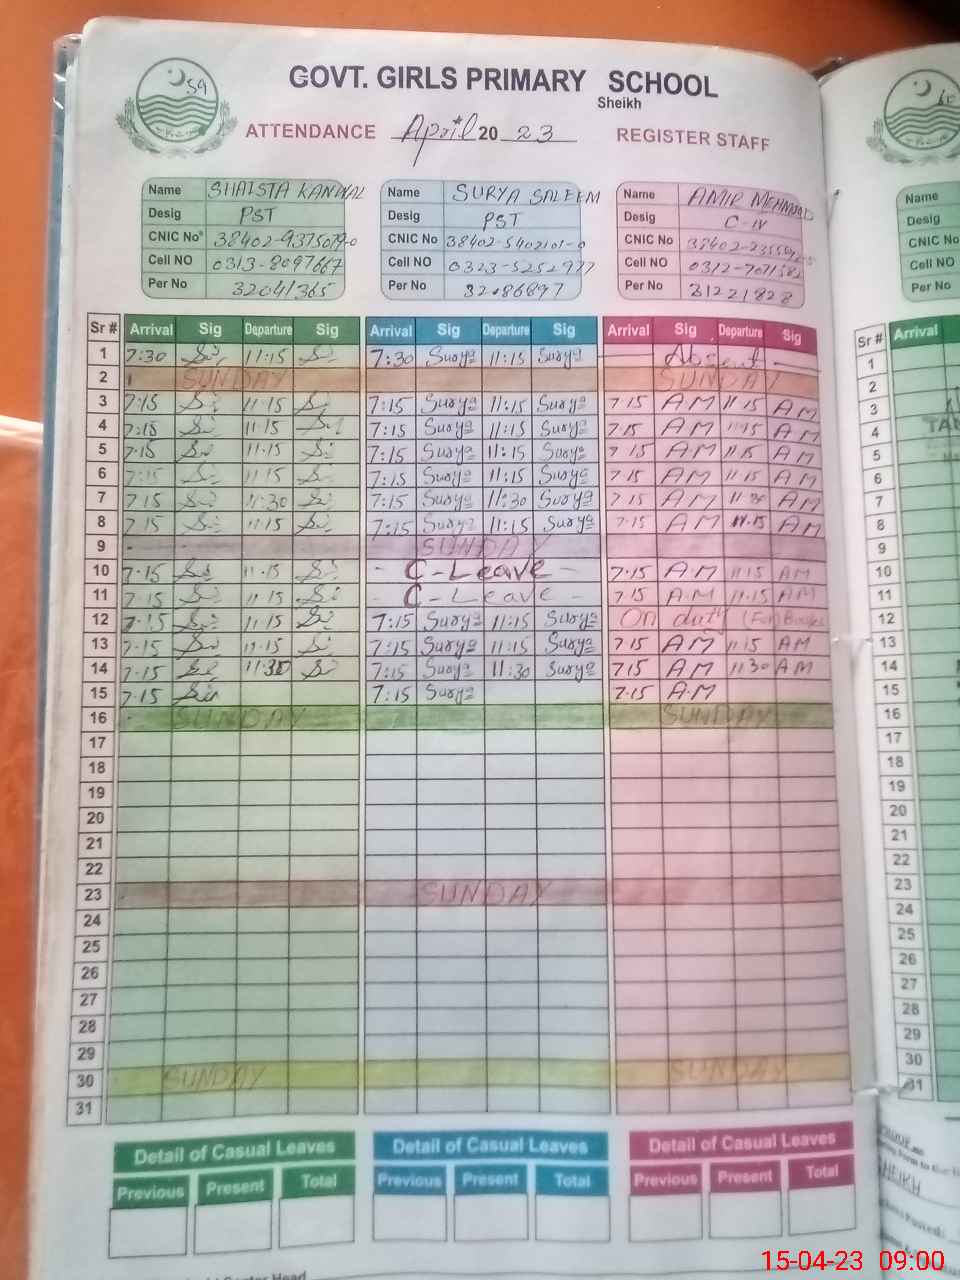 59
GOVT. GIRLS PRIMARY SCHOOL
Sheikh
ATTENDANCE April 2023 REGISTER STAFF
Name SHAISTA KANWAL Name SURYA SALEEM Name AMIR MEHMOOD
Desig PST Desig PST Desig C-IV
CNIC No CNIC No 38402-5402101-0 CNIC No
Cell NO 0313-8097667 Cell NO 0323-5252977 Cell NO
Per No 32041365 Per No 32086897 Per No 31221828
Sr # Arrival Sig Departure Sig Arrival Sig Departure Sig Arrival Sig Departure Sig
1 7:30 11:15 7:30 Surya 11:15 Surya Absent
2 SUNDAY SUNDAY
3 7:15 11:15 7:15 Surya 11:15 Surya 7 15 AM 11 15 AM
4 7:15 11:15 7:15 Surya 11:15 Surya 7 15 AM 11 15 AM
5 7-15 11-15 7:15 Surya 11:15 Surya 7 15 AM 11 15 AM
6 7:15 11:15 7:15 Surya 11:15 Surya 7-15 AM 11 15 AM
7 7 15 11:30 7:15 Surya 11:30 Surya 7 15 AM 11 30 AM
8 7 15 11-15 7:15 Surya 11:15 Surya 7-15 AM 11-15 AM
9 SUNDAY
10 7-15 11-15 - C-Leave - 7-15 A.M 11 15 AM
11 7-15 11-15 - C-Leave - 7-15 A.M 11-15 AM
12 7-15 11-15 7:15 Surya 11:15 Surya On duty (For Books
13 7-15 11-15 7:15 Surya 11:15 Surya 7 15 AM 11 15 AM
14 7-15 11:30 7:15 Surya 11:30 Surya 7 15 AM 11 30 AM
15 7-15 7:15 Surya 7-15 A.M
16 SUNDAY SUNDAY
17
18
19
20
21
22
23 SUNDAY
24
25
26
27
28
29
30 SUNDAY SUNDAY
31
Detail of Casual Leaves Detail of Casual Leaves Detail of Casual Leaves
Previous Present Total Previous Present Total Previous Present Total
Head
Name
Desig
CNIC No
Cell NO
Per No
Sr # Arrival
1
2
3
4
5
6
7
8
9
10
11
12
13
14
15
16
17
18
19
20
21
22
23
24
25
26
27
28
29
30
31
15-04-23 09:00